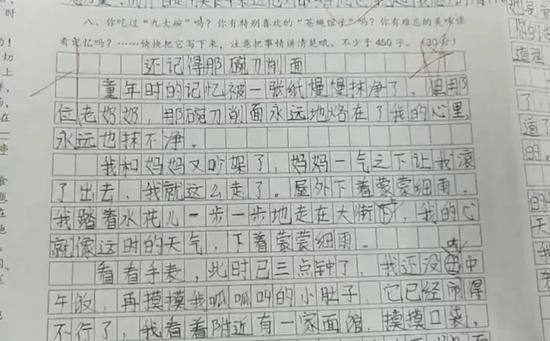 八、你吃过“九大碗”吗？你有特别喜欢的“苍蝇馆子”吗？你有难忘的美味佳
看记忆吗？……快快把它写下来，注意把事情讲清楚哦。不少于450字。（30分）
还记得那碗刀削面
童年时的记忆被一张纸慢慢抹净了，但那
位老奶奶，那碗刀削面永远地烙在了我的心里
永远也抹不净。
我和妈妈又吵架了，妈妈一气之下让我滚
了出去，我就这么走了。屋外下着蒙蒙细雨。
我踏着水花儿一步一步地走在大街，我的心
就像这时的天气，下着蒙蒙细雨。
看看手表，此时已三点钟了，我还没吃中
午饭，再摸摸我呱呱叫的小肚子，它已经饿得
不行了，我看着附近有一家面馆，摸摸口袋，